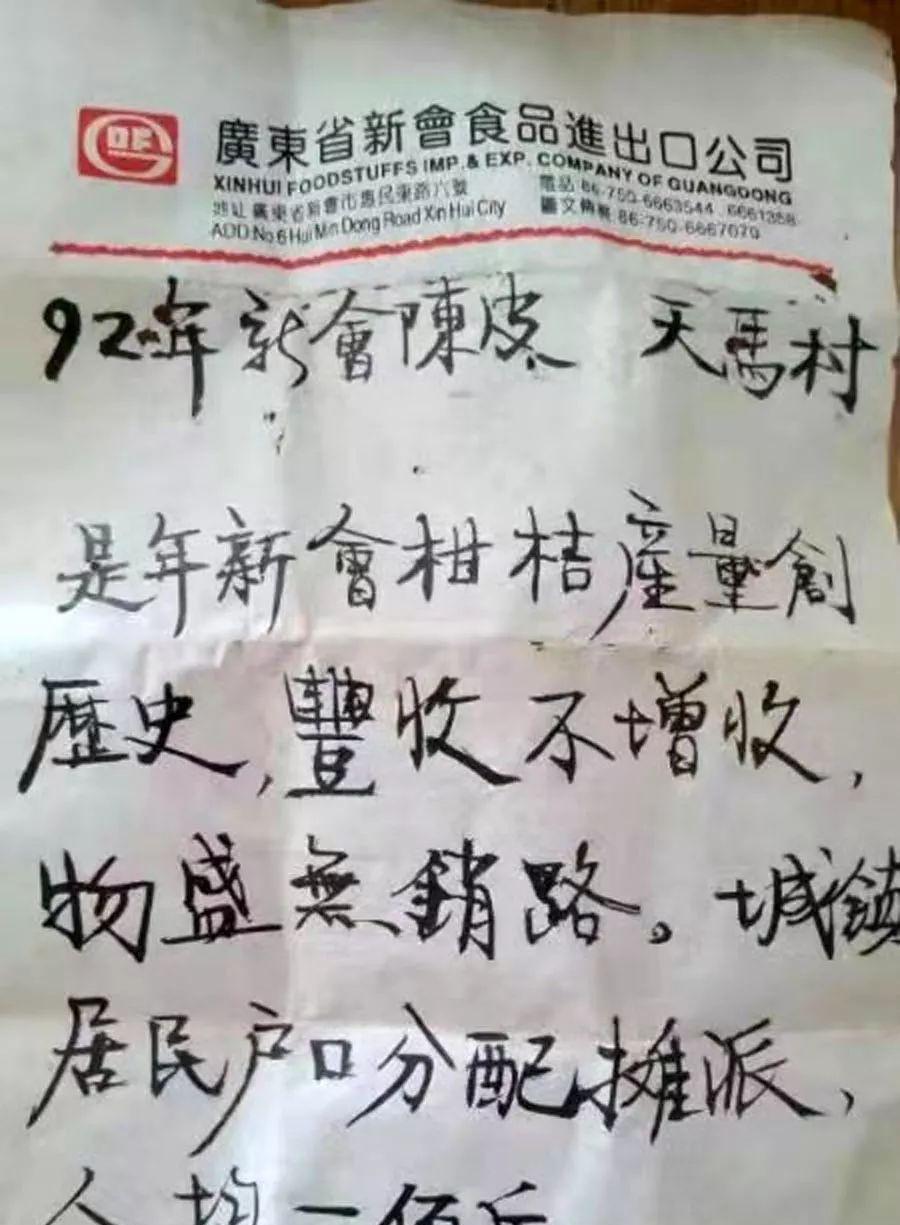 廣東省新會食品進出口公司
XINHUI FOODSTUFFS IMP. & EXP. COMPANY OF GUANGDONG
地址 廣東省新會市惠民東路六號
電話 86-750-6663544 6661358
ADD No 6 Hui Min Dong Road Xin Hui City
圖文傳真 86-750-6667079
92年新會陳皮 天馬村
是年新會柑桔産量創
歷史,豐收不增收,
物盛無銷路。城鎮
居民户口分配攤派,
人均一佰斤